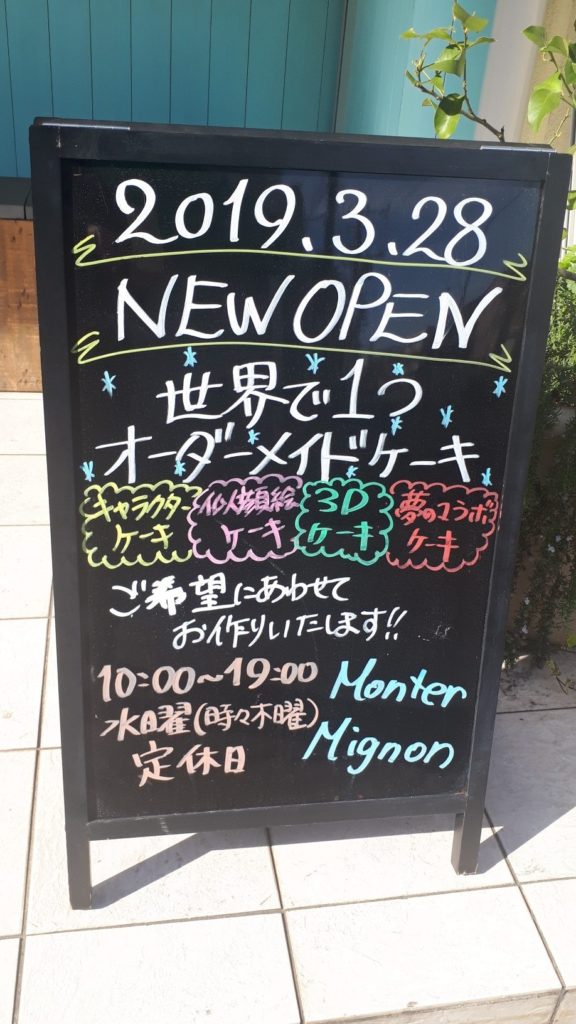 2019.3.28
NEW OPEN
世界で1つ
オーダーメイドケーキ
キャラクター
ケーキ
似顔絵
ケーキ
3D
ケーキ
夢のコラボ
ケーキ
ご希望にあわせて
お作りいたします!!
10:00〜19:00
水曜(時々木曜)
定休日
Monter
Mignon